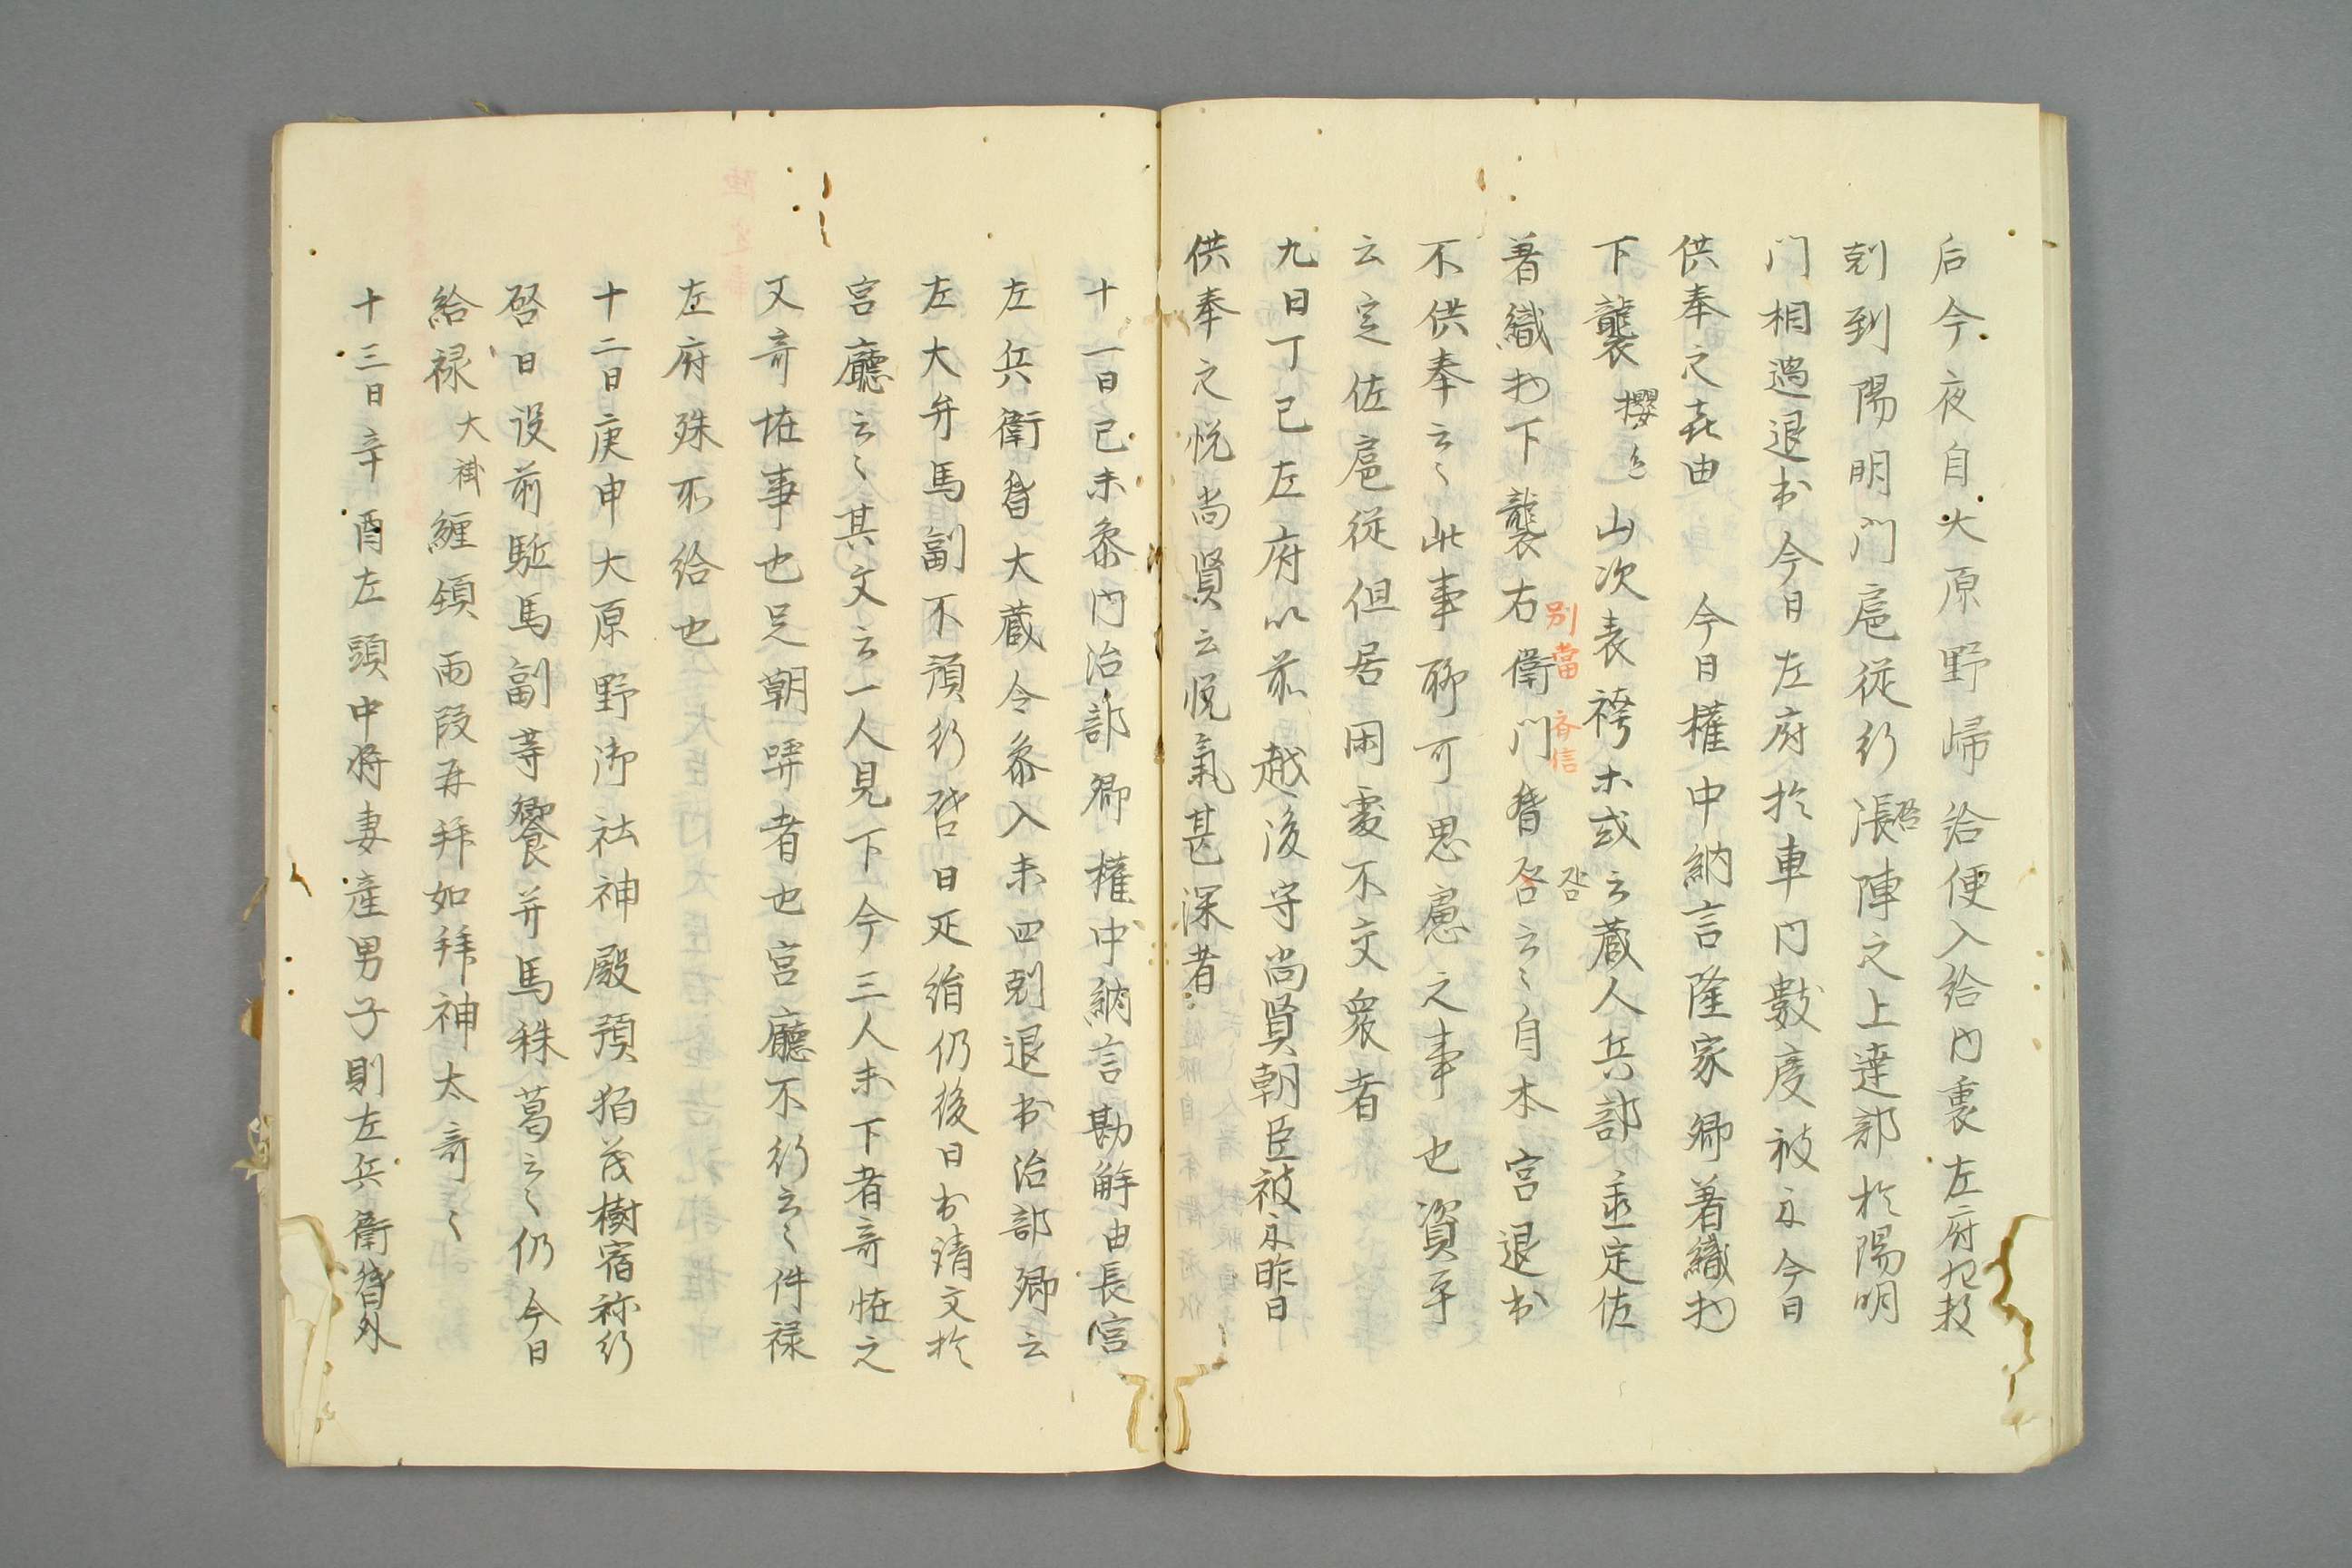 后今夜自大原野帰給便入給内裏左府
剋到陽明門扈従行啓陣之上達部於陽明
門相過退出今日左府於車内數度被示今日
供奉之㐂由　今日權中納言隆家卿著織物
下襲櫻色山次表袴木或云蔵人兵部丞定佐
著織物下襲右衛門督啓云〻自本宮退出
別當 斉信
啓
不供奉云〻此事聊可思慮之事也資平
云定佐扈従但居困處不交衆者
九日丁巳左府以前越後守尚賢朝臣被示昨日
供奉之悦尚賢云悦氣甚深者
十一日己未参内治部卿權中納言勘解由長官
左兵衛督大蔵令参入未四剋退出治部卿云
左大弁馬副不預行啓日疋絹仍後日出請文於
宮廳云〻其文云一人見下今三人未下者奇恠之
又奇恠事也足朝哢者也宮廳不行云〻件禄
左府殊不給也
十二日庚申大原野御社神殿預狛茂樹宿祢行
啓日設前駈馬副等饗并馬秣葛云〻仍今日
給禄大褂纏頭両段再拜如拜神太奇〻
十三日辛酉左頭中将妻産男子則左兵衛督外